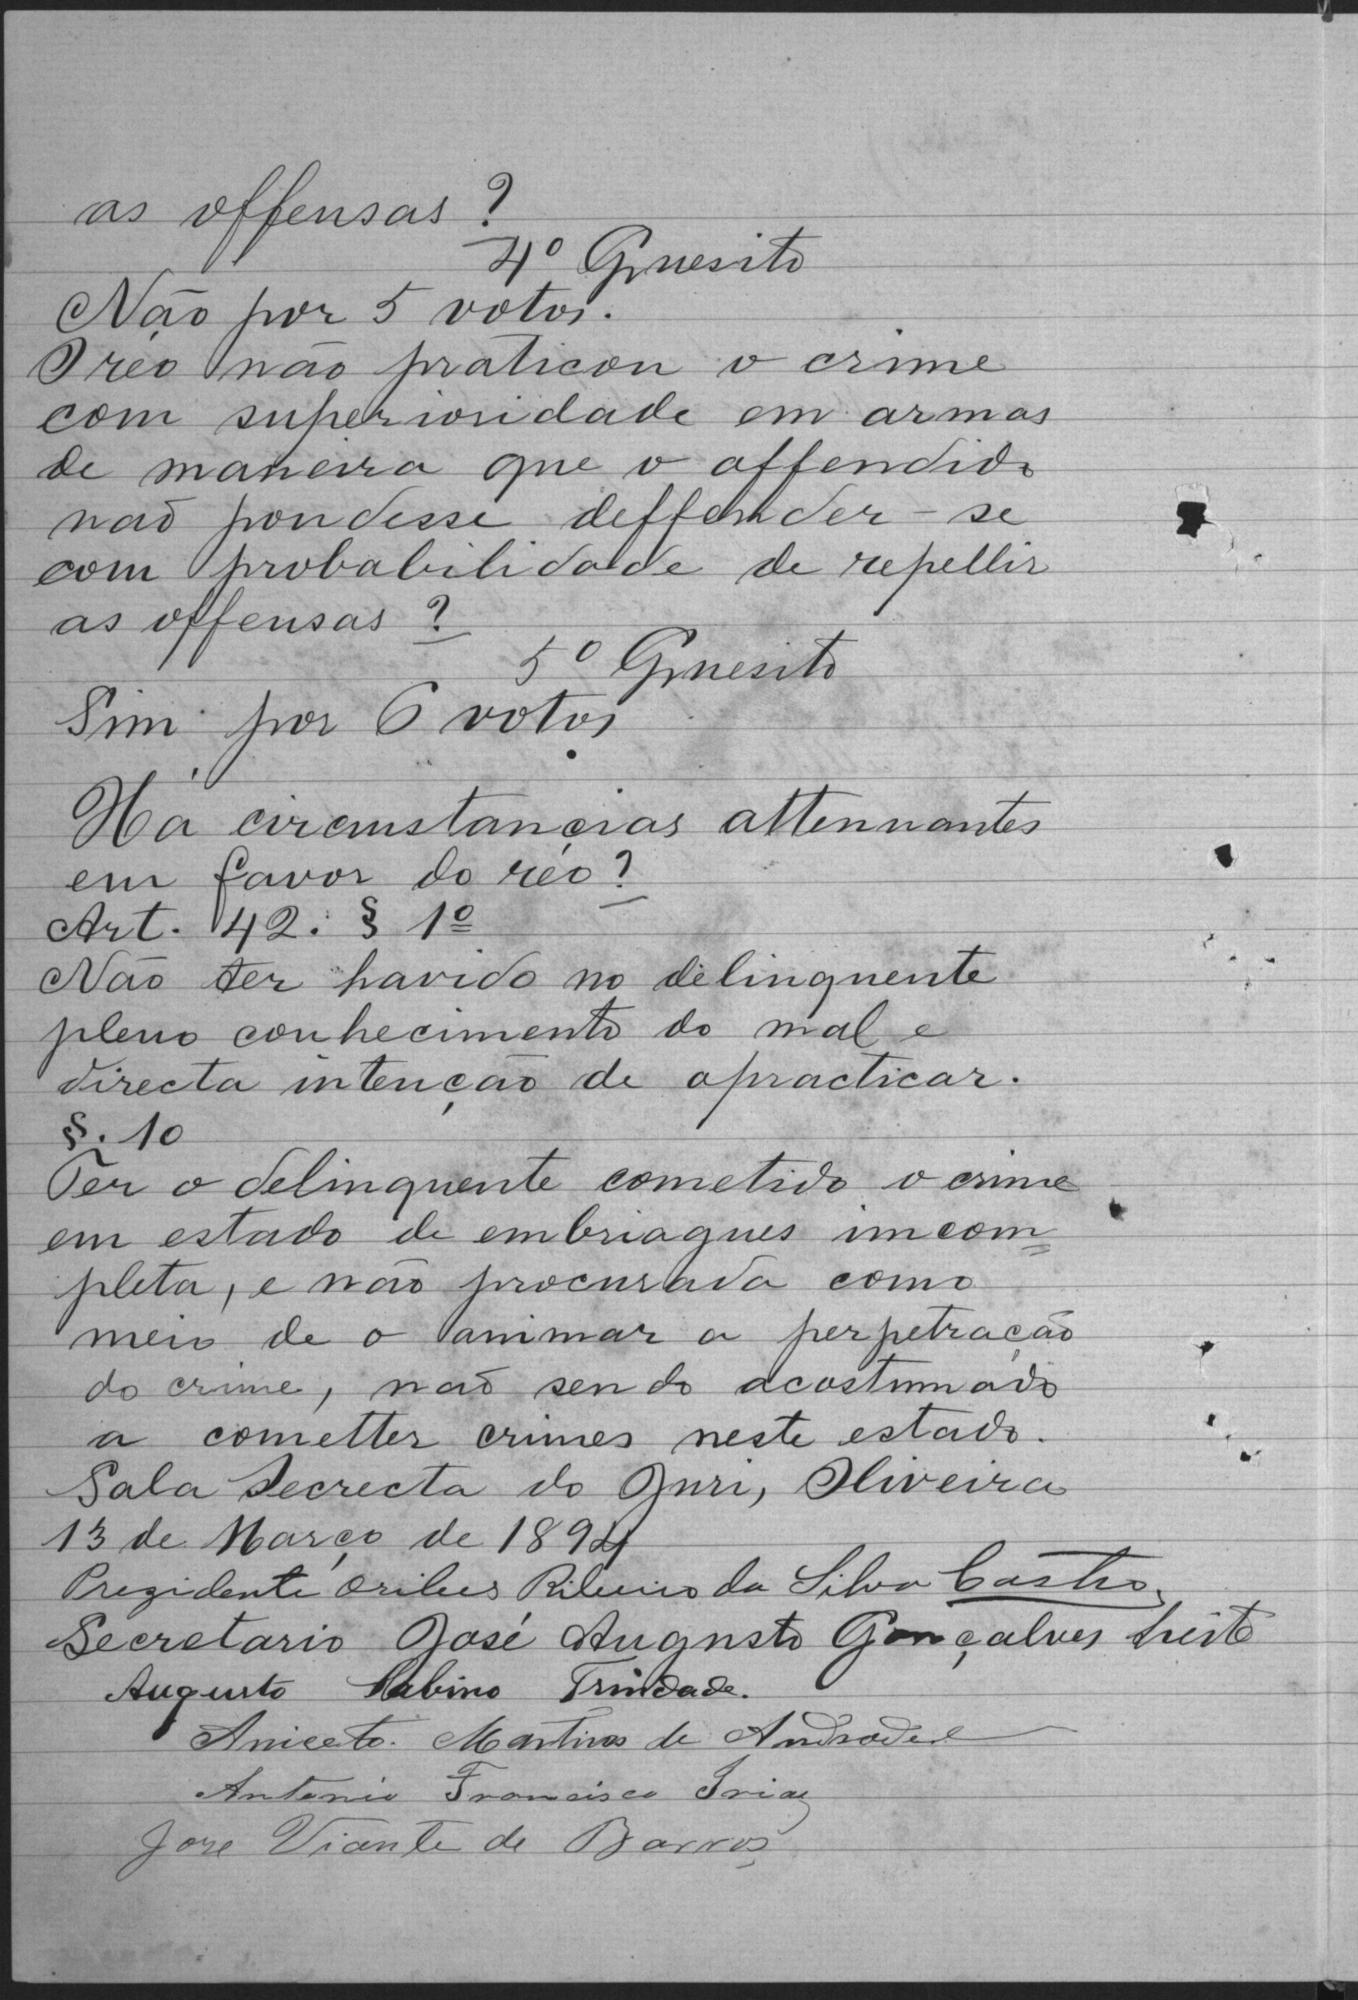 as offensas?
4º Quesito
Não por 5 votos.
O réo não praticou o crime
com superioridade em armas
de maneira que o offendido
não poudesse deffender-se
com probabilidade de repellir
as offensas?
5º Quesito
Sim por 6 votos
Há circumstancias attenuantes
em favor do réo?
Art. 42. § 1º
Não ter havido no delinquente
pleno conhecimento do mal e
directa intenção de o practicar.
§. 10
Ter o delinquente cometido o crime
em estado de embriagues imcom=
pleta, e não procurada como
meio de o animar a perpetração
do crime, não sendo acostumado
a cometter crimes neste estado.
Sala Secrecta do Juri, Oliveira
13 de Março de 1894
Prezidente Ribeiro da Silva Castro.
Secretario José Augusto Gonçalves
Augusto Sabino Trindade.
Aniceto Martins de Andrade
Antonio Francisco
Jose Viante de Barros